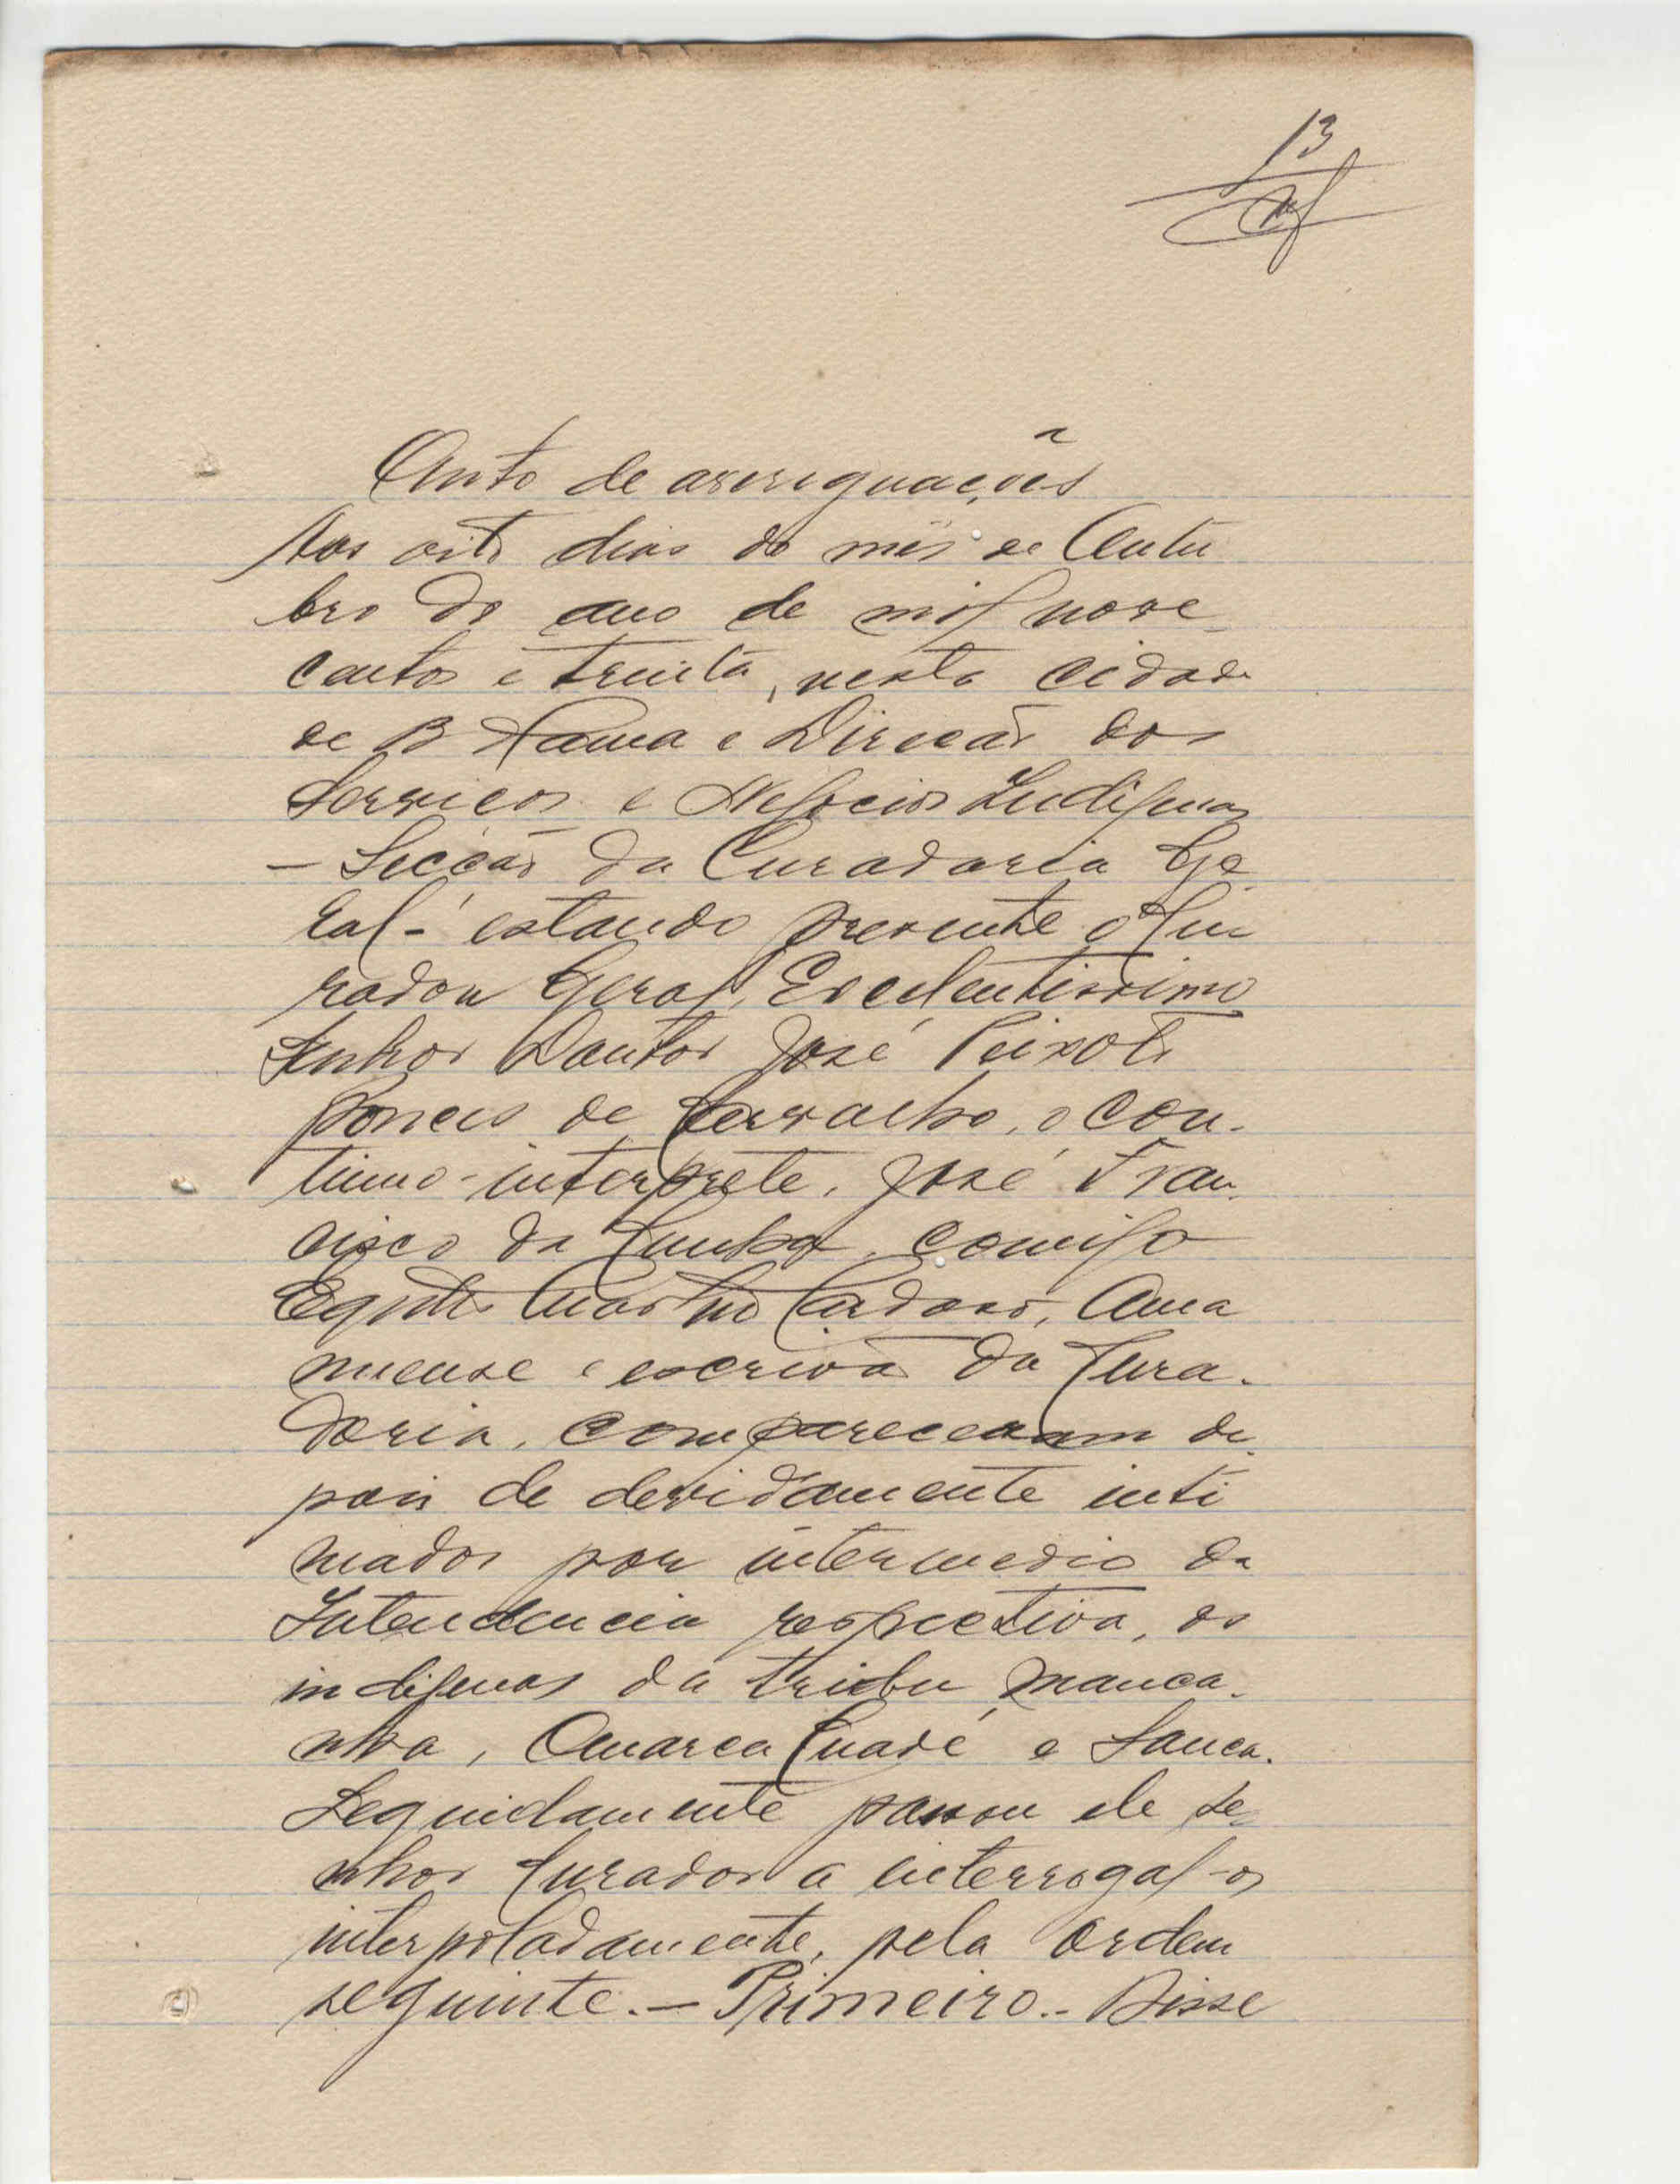 13
Auto de averiguações
Aos oito dias do mês de Outu
bro do ano de mil nove
centos e trinta, nesta cidade
de Bolama e Direcção dos
Serviços e Negocios Indigenas
— Secção da Curadoria Ge
ral - estando presente o Cu
rador Geral, Excelentissimo
Senhor Doutor José Peixoto
Ponces de Carvalho, o con-
tinuo-interprete, José Fran
cisco da Cunha, comigo
Cardoso, Ama
nuense e escrivão da Cura-
doria, compareceram de
pois de devidamente inti
mados por intermedio da
Intendencia respectiva, os
indigenas da tribu manca-
nha, e Sanca.
Seguidamente passou ele se-
nhor Curador a interrogal-os
interpoladamente, pela ordem
seguinte. — Primeiro. - Disse